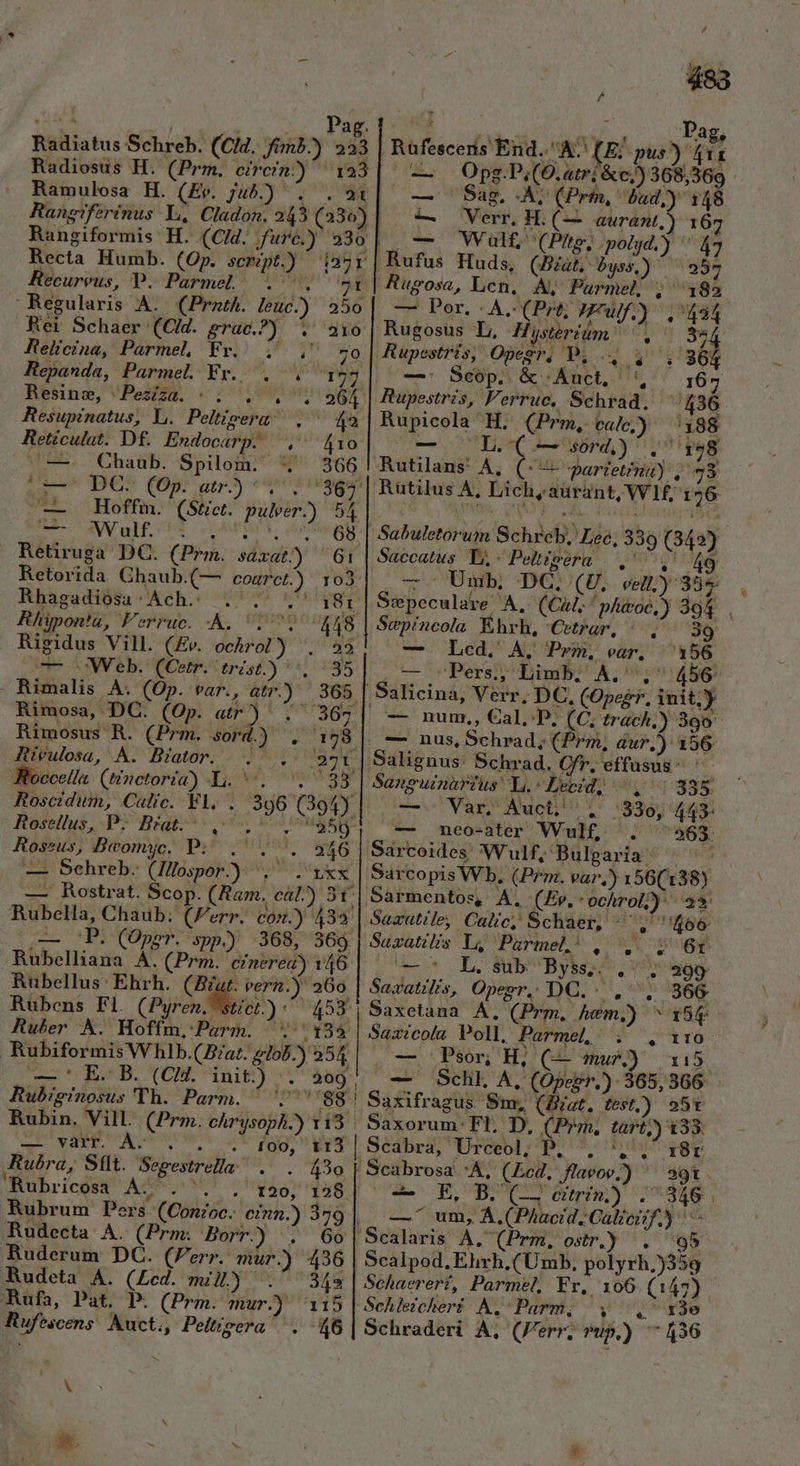 483
Pag.
Radiatus Schreb. (Cld. fimb.) 223
Radiosus H. (Prm. circin.) 123
Ramulosa H. (Ev. jub.) . . 21
Rangiferinus L, Cladon. 243 (236)
Rangiformis H. (Cld. furc.) 230
Recta Humb. (Op. script.) 251
Recurvus, P. Parmel. . . 51
Regularis A. (Prnth. leuc.) 250
Rei Schaer (Cld. grac.?) . 210
Relicina, Parmel, Fr. . . 70
Repanda, Parmel. Fr. . . 177
Resinæ, Peziza. . . . . 264
Resupinatus, L. Peltigera . 42
Reticulat. Df. Endocarp. . 410
— Chaub. Spilom. . 366
— DC. (Op. atr.) . . 367
— Hoffm. (Stict. pulver.) 54
— Wulf. . . . . 68
Retiruga DC. (Prm. saxat.) 61
Retorida Chaub.(— coarct.) 103
Rhagadiosa Ach. . . . 181
Rhyponta, Verruc. A. . . 448
Rigidus Vill. (Ev. ochrol.) . 22
— Web. (Cetr. trist.) . 35
Rimalis A. (Op. var., atr.) 365
Rimosa, DC. (Op. atr.) . 367
Rimosus R. (Prm. sord.) . 178
Rivulosa, A. Biator. . . 271
Roccella (tinctoria) L. . . 33
Roscidum, Calic. Fl. . 396 (394)
Rosellus, P. Biat. . . . 259
Roseus, Bæomyc. P. . . 246
— Schreb. (Illospor.) . . LXX
— Rostrat. Scop. (Ram. cal.) 31
Rubella, Chaub. (Verr. con.) 432
— P. (Opgr. spp.) 368, 369
Rubelliana A. (Prm. cinerea) 146
Rubellus Ehrh. (Biat. vern.) 260
Rubens Fl. (Pyren. stict.) 453
Ruber A. Hoffm, Parm. . 132
Rubiformis Whlb.(Biat. glob.) 254
— E. B. (Cld. init.) . 209
Rubiginosus Th. Parm. . 88
Rubin. Vill. (Prm. chrysoph.) 113
— varr. A. . . . 100, 113
Rubra, Sflt. Segestrella . . 430
Rubricosa A. . . . 120, 128
Rubrum Pers (Conioc. cinn.) 379
Rudecta A. (Prm. Borr.) . 60
Ruderum DC. (Verr. mur.) 436
Rudeta A. (Lcd. mill.) . 342
Rufa, Pat. P. (Prm. mur.) 115
Rufescens Auct., Peltigera . 46
Pag.
Rufescens End. A. (E. pus.) 411
— Opg.P.(O.atr.&c.) 368,369
— Sag. A. (Prm, bad.) 148
— Verr. H.(— aurant.) 167
— Wulf. (Pltg. polyd.) 47
Rufus Huds, (Biat. byss.) 257
Rugosa, Len. A. Parmel. . 182
— Por. A. (Prt. Wulf.) . 424
Rugosus L. Hysterium . 354
Rupestris, Opegr. P. . . . 364
— Scop. & Auct. . . 167
Rupestris, Verruc. Schrad. 436
Rupicola H. (Prm. calc.) 188
— L. (— sord.) . 178
Rutilans A. (— parietina) . 73
Rutilus A. Lich, aurant, Wlf. 176
Sabuletorum Schreb. Lec. 339 (342)
Saccatus L. Peltigera . . 49
— Umb. DC. (U. vell.) 357
Sæpeculare A. (Cal. phæoc.) 394
Sæpincola Ehrh, Cetrar. . . 39
— Lcd. A. Prm. var. 156
— Pers., Limb. A. . 456
Salicina, Verr. DC. (Opegr. init.)
— num., Cal. P. (C. trach.) 390
— nus, Schrad. (Prm. aur.) 156
Salignus Schrad. Cfr. effusus
Sanguinarius L. Lecid. . . 335
— Var. Auct. . 330, 443
— neo-ater Wulf. . 263
Sarcoides Wulf, Bulgaria
Sarcopis Wb. (Prm. var.) 156(138)
Sarmentos, A. (Ev. ochrol.) 22
Saxatile, Calic. Schaer. . . 400
Saxatilis L, Parmel. . . . 61
— L. sub Byss. . . 299
Saxatilis, Opegr. DC. . . . 366
Saxetana A. (Prm. hæm.) 154
Saxicola Poll. Parmel. . . 110
— Psor. H. (— mur.) 115
— Schl. A. (Opegr.) 365, 366
Saxifragus Sm. (Biat. test.) 251
Saxorum Fl. D. (Prm. tart.) 133
Scabra, Urceol. P. . . . 181
Scabrosa A. (Lcd. flavov.) 291
— E. B. (— citrin.) . 346
— um, A.(Phacid. Caliciif.)
Scalaris A. (Prm. ostr.) . 95
Scalpod. Ehrh.(Umb. polyrh.)359
Schaereri, Parmel, Fr. 106 (147)
Schleicheri A. Parm. . . 130
Schraderi A. (Verr. rup.) 436